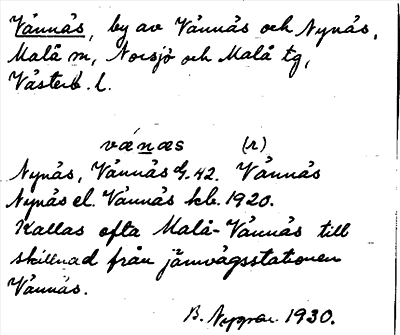 Vännäs, by av Vännäs och Nynäs,
Malå sn, Norsjö och Malå tg,
Västerb. l.
vǽnæs (r)
Nynäs, Vännäs 42. Vännäs
Nynäs el. Vännäs kb. 1920.
Kallas ofta Malå-Vännäs till
skillnad från järnvägsstationen
Vännäs.
B. 1930.